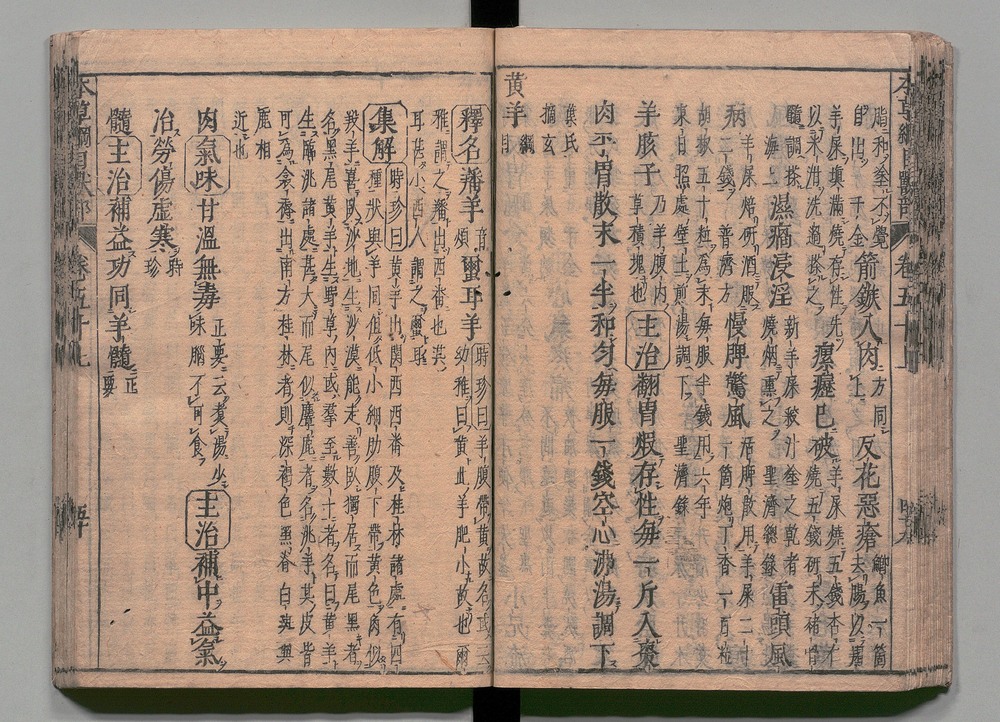 本草綱目獸部 卷五十
脂和塗不覺
即出千金 箭鏃入肉 方同上 反花惡瘡 鯽魚一箇去腸以羯
羊屎填滿燒存性先
以米泔洗過搽之 瘰癧已破 羊屎燒五錢杏仁燒五錢研末猪骨
髓調搽
海上 濕瘑浸淫 新羊屎絞汁塗之乾者燒烟熏之 聖濟總錄 雷頭風
病 羊屎焙研酒服二錢 普濟方 慢脾驚風
胡椒五十粒為末每服半錢用六年
東日照處壁土煎湯調下 聖濟錄
羊胲子 乃羊腹內草積塊也 主治 翻胃煅存性每一斤入棗
肉平胃散末一半和匀每服一錢空心沸湯調下
黃羊 綱目
釋名 羳羊 音煩 蠒耳羊 時珍曰羊腹帶黃故名或云
幼稚曰黃此羊肥小故也爾
雅謂之羳出西番也其
耳甚小西人謂之蠒耳
集解 時珍曰黃羊出關西西番及桂林諸處有四
種狀與羊同但低小細肋腹下帶黃色角似
羖羊喜臥沙地生沙漠能走善臥獨居而尾黑者
名黑尾黃羊生野草內或羣至數十者名曰黃羊
生臨洮諸處甚大而尾似麞鹿者名洮羊其皮皆
可為衾褥出南方桂林者則深褐色黑脊白斑與
鹿相
近也
肉 氣味 甘溫無毒 正要云煮湯少味腦不可食 主治 補中益氣
治勞傷虛寒 時珍
髓 主治 補益功同羊髓 正要
本草綱目獸部 卷五十